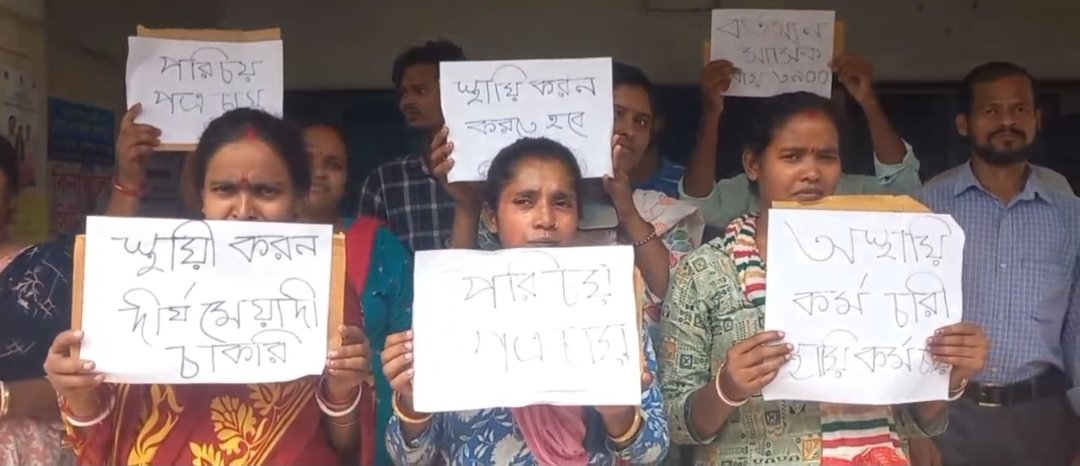 পরিচয়
পত্র চায়
স্থায়ি করন
করতে হবে
বর্তমান
মাসিক
আয় ৩৯০০
স্থায়ী করন
দীর্ঘ মেয়াদী
চাকরি
পরিচয়
পত্র চায়
অস্থায়ি
কর্ম চারী
স্থায়ি কর্ম চারি